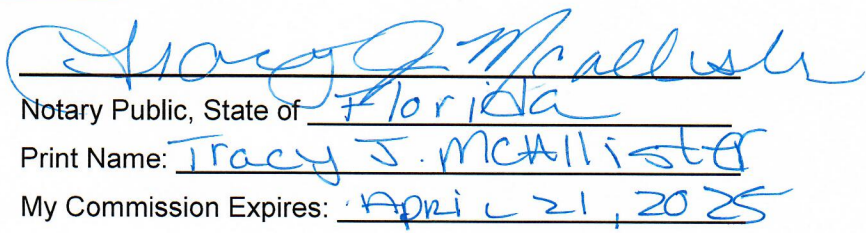 Tracy J McAllister
Notary Public, State of Florida
Print Name: Tracy J. McAllister
My Commission Expires: April 21, 2025